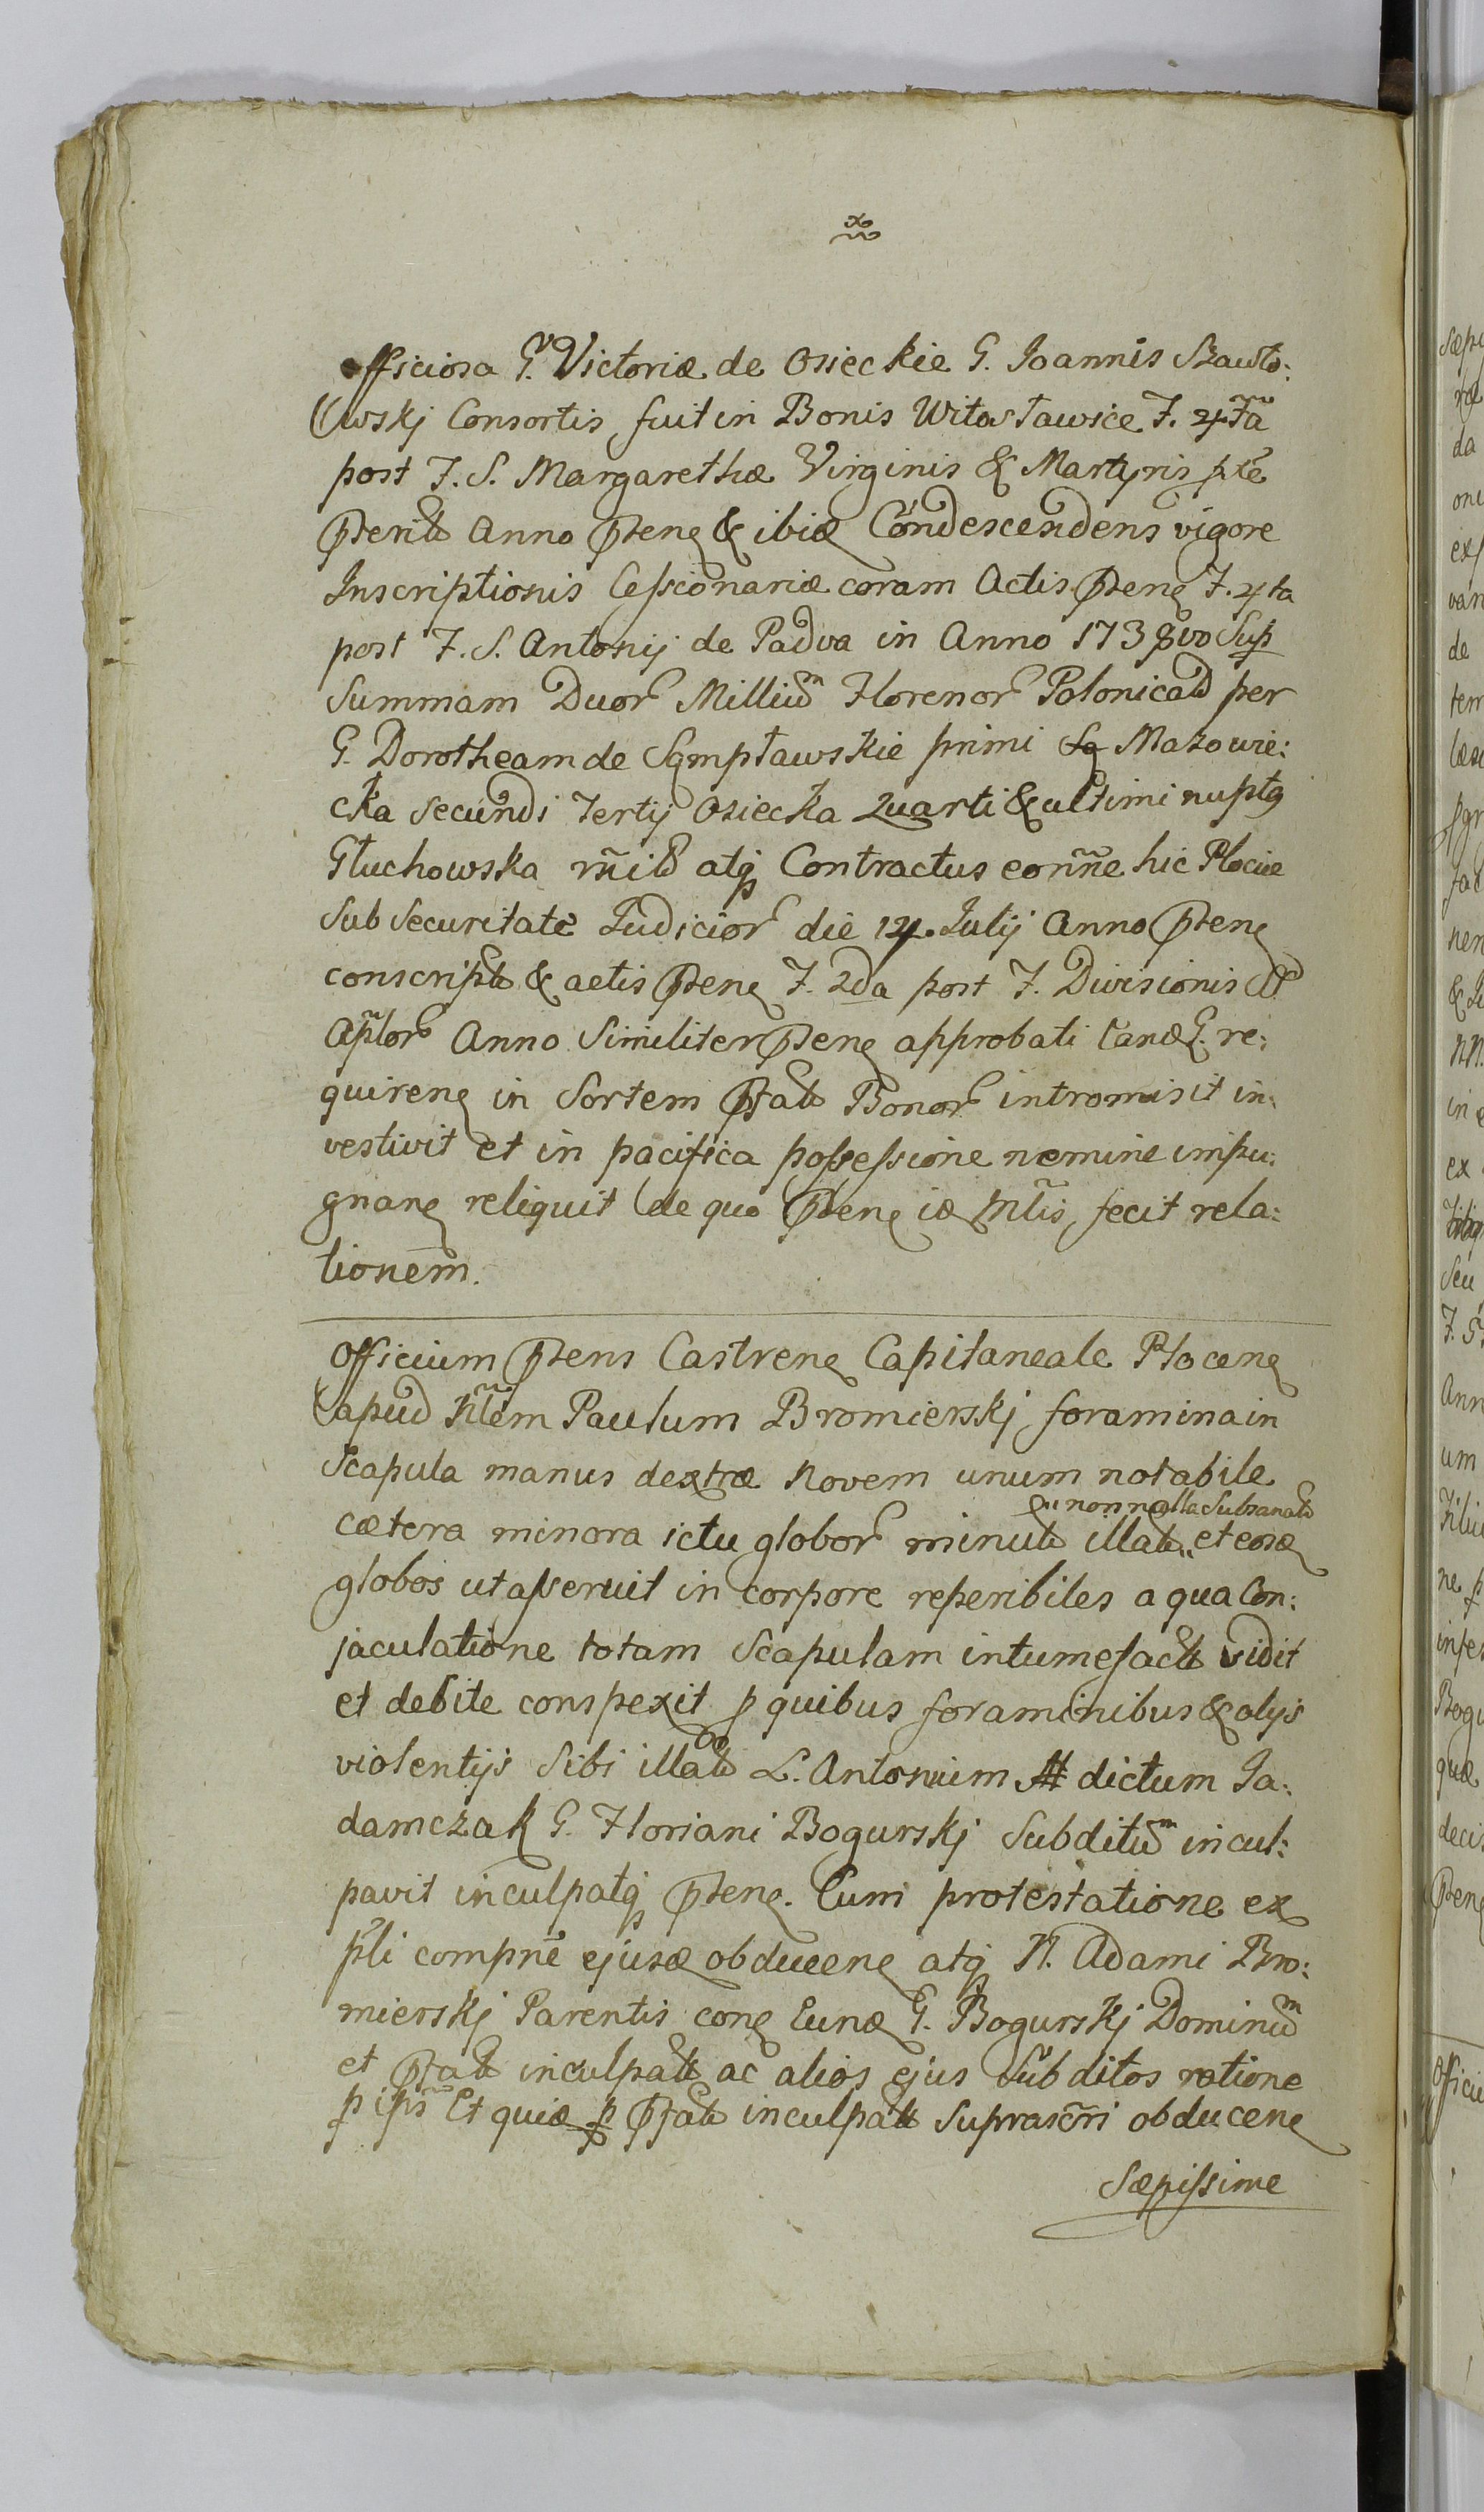 officiosa G. Victoriæ de Osieckie G. Joannis Szawło:
wskj Consortis, fuit in Bonis Witosławice F. 4ta
post F. S. Margarethæ Virginis & Martyris pte
pterit Anno pten & ibid Condescendens vigore
Inscriptionis Cessionariæ coram Actis pten F. 4ta
post F. S. Antonij de Padva in Anno 1738vo Sup
Summam Duor Millium Florenor Polonical per
G. Dorotheam de Sąmpławskie primi Mazowie:
cka Secundi Tertij Osiecka Quarti & ultimi nupt
Głuchowska atq Contractus eorñne hic Plociæ
Sub Securitate Judicior die 14. Julij Anno pten
conscript & actis pten F. 2da post F. Divisionis
Aplor Anno Similiter pten approbati Eand G. re:
quiren in Sortem pfat Bonor intromisit in:
vestivit et in pacifica possessione nemine impu:
gnan reliquit de quo pten id Mlis, fecit rela:
tionem.
Officium ptens Castren Capitaneale Plocen
apud Nlem Paulum Bromierskj foramina in
Scapula manus dextræ Novem unum notabile
nonnulla Subsanat
cætera minora ictu globor minut illat et eosd
globos ut asseruit in corpore reperibiles a qua Con:
jaculatione totam Scapulam intumefact vidit
et debite conspexit p quibus foraminibus & alijs
violentijs Sibi illat L. Antonium dictum Ja:
damczak G. Floriani Bogurskj Subditum incul:
pavit inculpatq pten. Cum protestatione ex
pti compne ejusd obducen atq N. Adami Bro:
mierskj Parentis con Eund G. Bogurskj Dominum
et pfat inculpat ac alios ejus Subditos ratione
p ips Et quid p pfat inculpat Suprascri obducen
Sæpissime